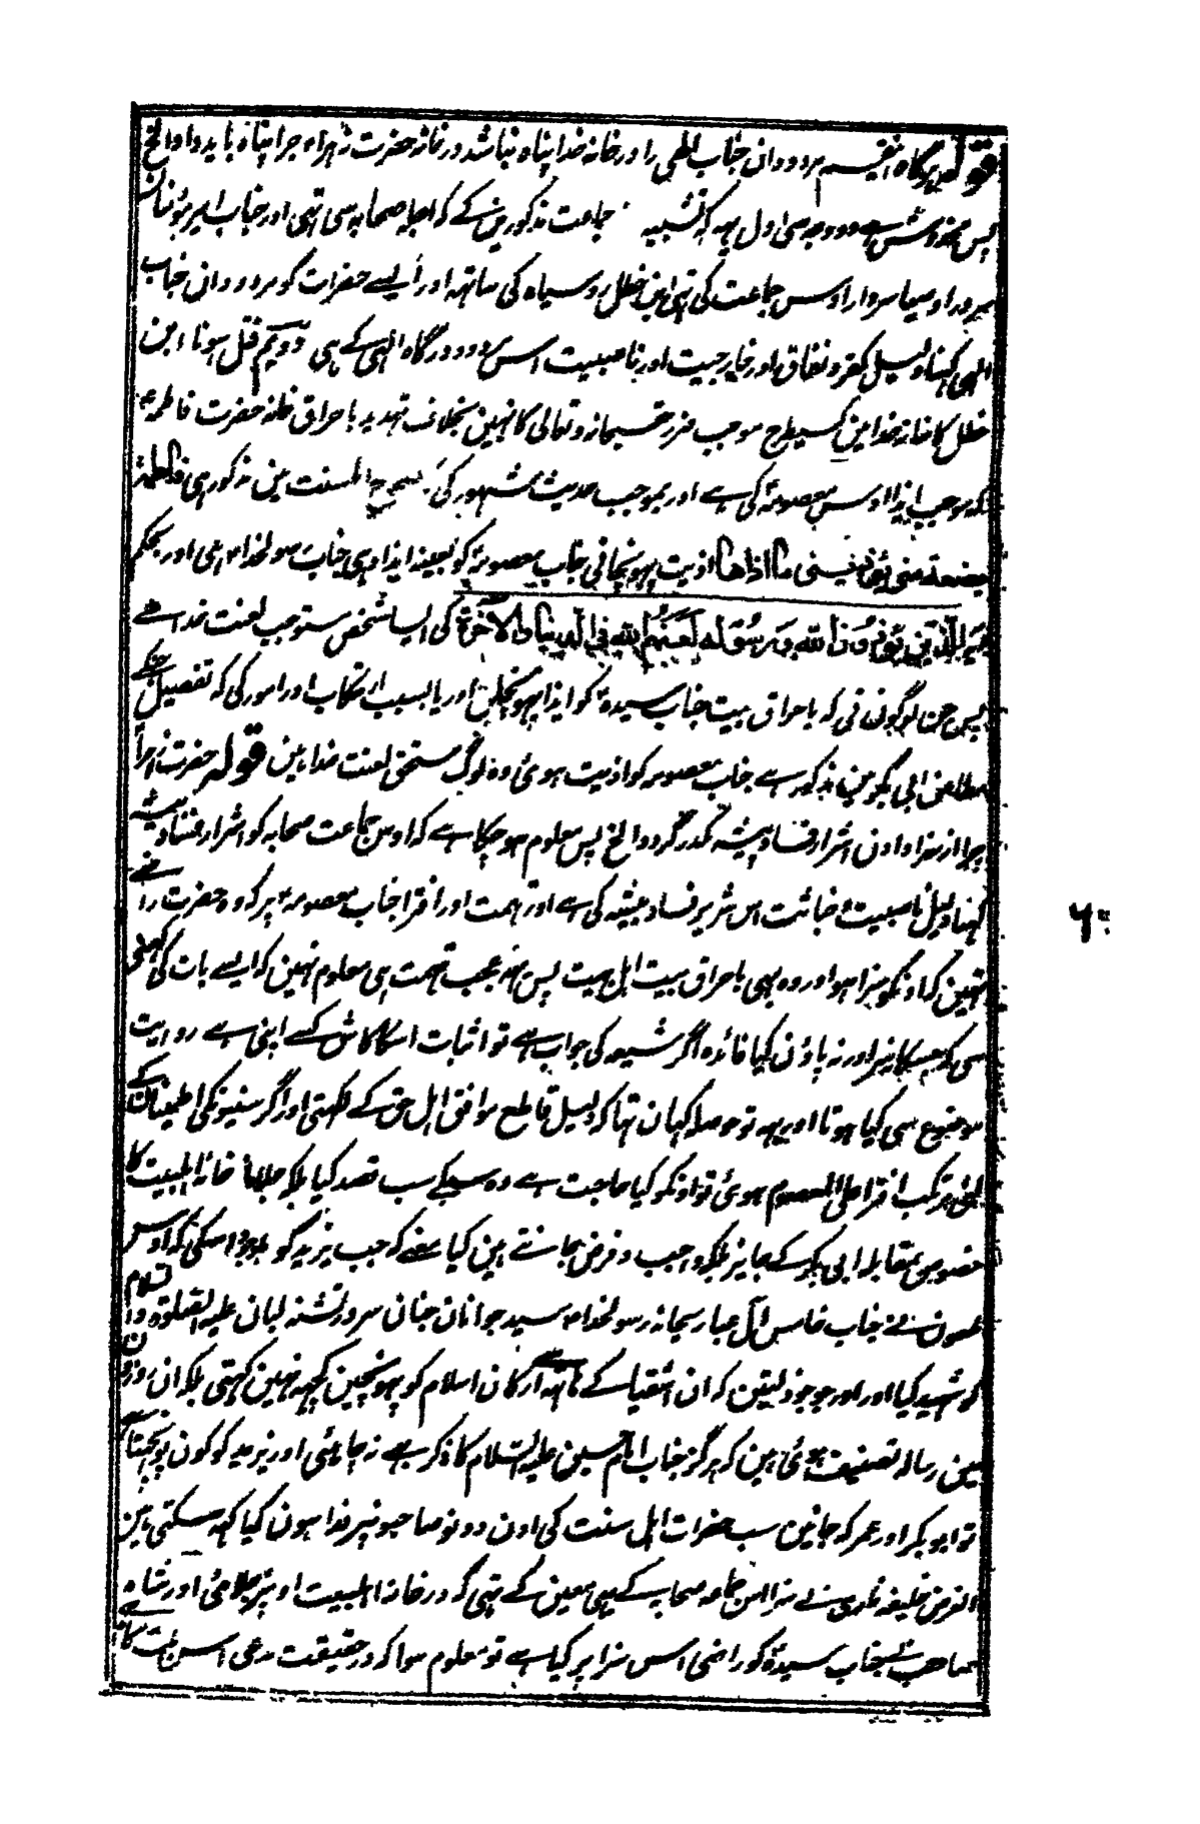 قولہ ہرگاہ اینقسم مردودان جناب الٰہی را در خانہ خدا پناہ نباشد در خانہ حضرت زہراء چرا پناہ باید داد الخ
پس مخدوش ہے دو وجہ سی اول یہہ کہ تشبیہ جماعت مذکورین کے کہ اجلہ صحابہ سی تہی اور جناب امیر
سردار اوس جماعت کی تہی ابن خطل روسیاہ کی ساتہہ اور ایسے حضرات کو مردودان جناب
الٰہی کہنا دلیل کفر و نفاق اور خارجیت اور ناصبیت اس مردود درگاہ الٰہی کے ہی دویم قتل ہونا ابن
خطل کا خانہ خدا مین کسیطرح موجب ضرر حق سبحانہ و تعالی کا نہین بخلاف تہدید باحراق خانہ حضرت فاطمہ
کہ موجب ایذا اوس معصومہ کی ہے اور بموجب حدیث مشہور کی کہ صحیح اہلسنت مین مذکور ہی فاطمة
بضعة منی یؤذینی ما اذاها اذیت پہونچانی جناب معصومہ کو بعینہ ایذا دہی جناب رسولخدا ہی اور بحکم
الَّذِیْنَ یُؤْذُوْنَ اللّٰہَ وَرَسُوْلَہٗ لَعَنَہُمُ اللّٰہُ فِی الدُّنْیَا وَالْاٰخِرَۃِ کی ایسا شخص مستوجب لعنت خدا ہے
پس جن لوگون نی کہ باحراق بیت جناب سیدہ کو ایذا پہونچائی اور یا بسبب ارتکاب اور امور کی کہ تفصیل جنکی
مطاعن ابی بکر مین مذکور ہے جناب معصومہ کو اذیت ہوئی وہ لوگ مستحق لعنت خدا ہین قولہ حضرت زہرا
چرا از سزا دادن اشرار فساد پیشہ مکدر گردد الخ پس معلوم ہو چکا ہے کہ اوس جماعت صحابہ کو اشرار فساد پیشہ
کہنا دلیل ناصبیت و خباثت اس شریر فساد پیشہ کی ہے اور تہمت اور افترا جناب معصومہ پر کہ وہ حضرت راضی
تہین کہ اونکو سزا ہو اور وہ بہی باحراق بیت اہل بیت پس یہہ عجب تہمت ہی معلوم نہین کہ ایسے بات کی کہنی
سی کہ جسکا سر اور نہ پاؤن کیا فائدہ اگر شیعہ کی جواب ہے تو اثبات اسکا کاش کسے اپنی ہے روایت
موضوع سی کیا ہوتا اور یہہ تو حوصلہ کہان تہا کہ دلیل قاطع موافق اہل حق کے لکہتی اور اگر سنیونکی اطمینان کے
لئی مرتکب افترا علی المعصوم ہوئی تو اونکو کیا حاجت ہے وہ سبکے سب قصد کیا بلکہ جلانا خانہ اہلبیت کا
خصوص بمقابلہ ابی بکر کے جایز بلکہ واجب و فرض جانتے ہین کیا معنے کہ جب یزید کو باوجود اسکی کہ اوس
ملعون نے جناب خامس آل عبا ریحانہ رسولخدا سید جوانان جنان سرور تشنہ لبان علیہ الصلوۃ والسلام
کو شہید کیا اور اور جو جو ذلتین کہ ان اشقیا کے ہاتہہ سے ارکان اسلام کو پہونچین کچہہ نہین کہتی بلکہ ان روزون
مین رسالہ تصنیف ہوئی ہین کہ ہرگز جناب امام حسین علیہ السلام کا ذکر ہے نہ چاہئی اور یزید کو کون پوچہتا ہے
تو ابوبکر اور عمر کہ جانین سب حضرات اہل سنت کی اون دونو صاحبونپر فدا ہون کیا کہہ سکتی ہین
الغرض خلیفہ ثانی نے سزا اس جماعہ صحابہ کے یہی معین کے تہی کہ در خانہ اہلبیت اونپر جلاوی اور شاہ
صاحب نے جناب سیدہ کو راضی اس سزا پر کیا ہے تو معلوم ہوا کہ در حقیقت مدعی اس بات کا
۶۰